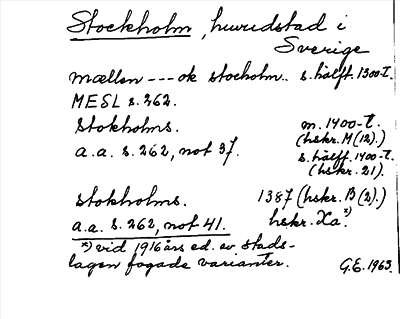 Stockholm, huvudstad i
Sverige
mællen --- ok stocholm.. s. hälft. 1300-t.
MESL s. 262.
Stokholms. m. 1400-t.
(hskr. M (12).)
a.a. s. 262, not 37. s. hälft. 1400-t.
(hskr. 21).
stokholms. 1387 (hskr. B (2).)
a.a. s. 262, not 41. hskr. Xa.*)
*) vid 1916 års ed. av stads-
lagen fogade varianter. G.E. 1963.